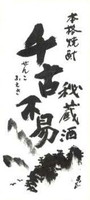 本格焼酎
秘蔵酒
千古不易
せんこふえき